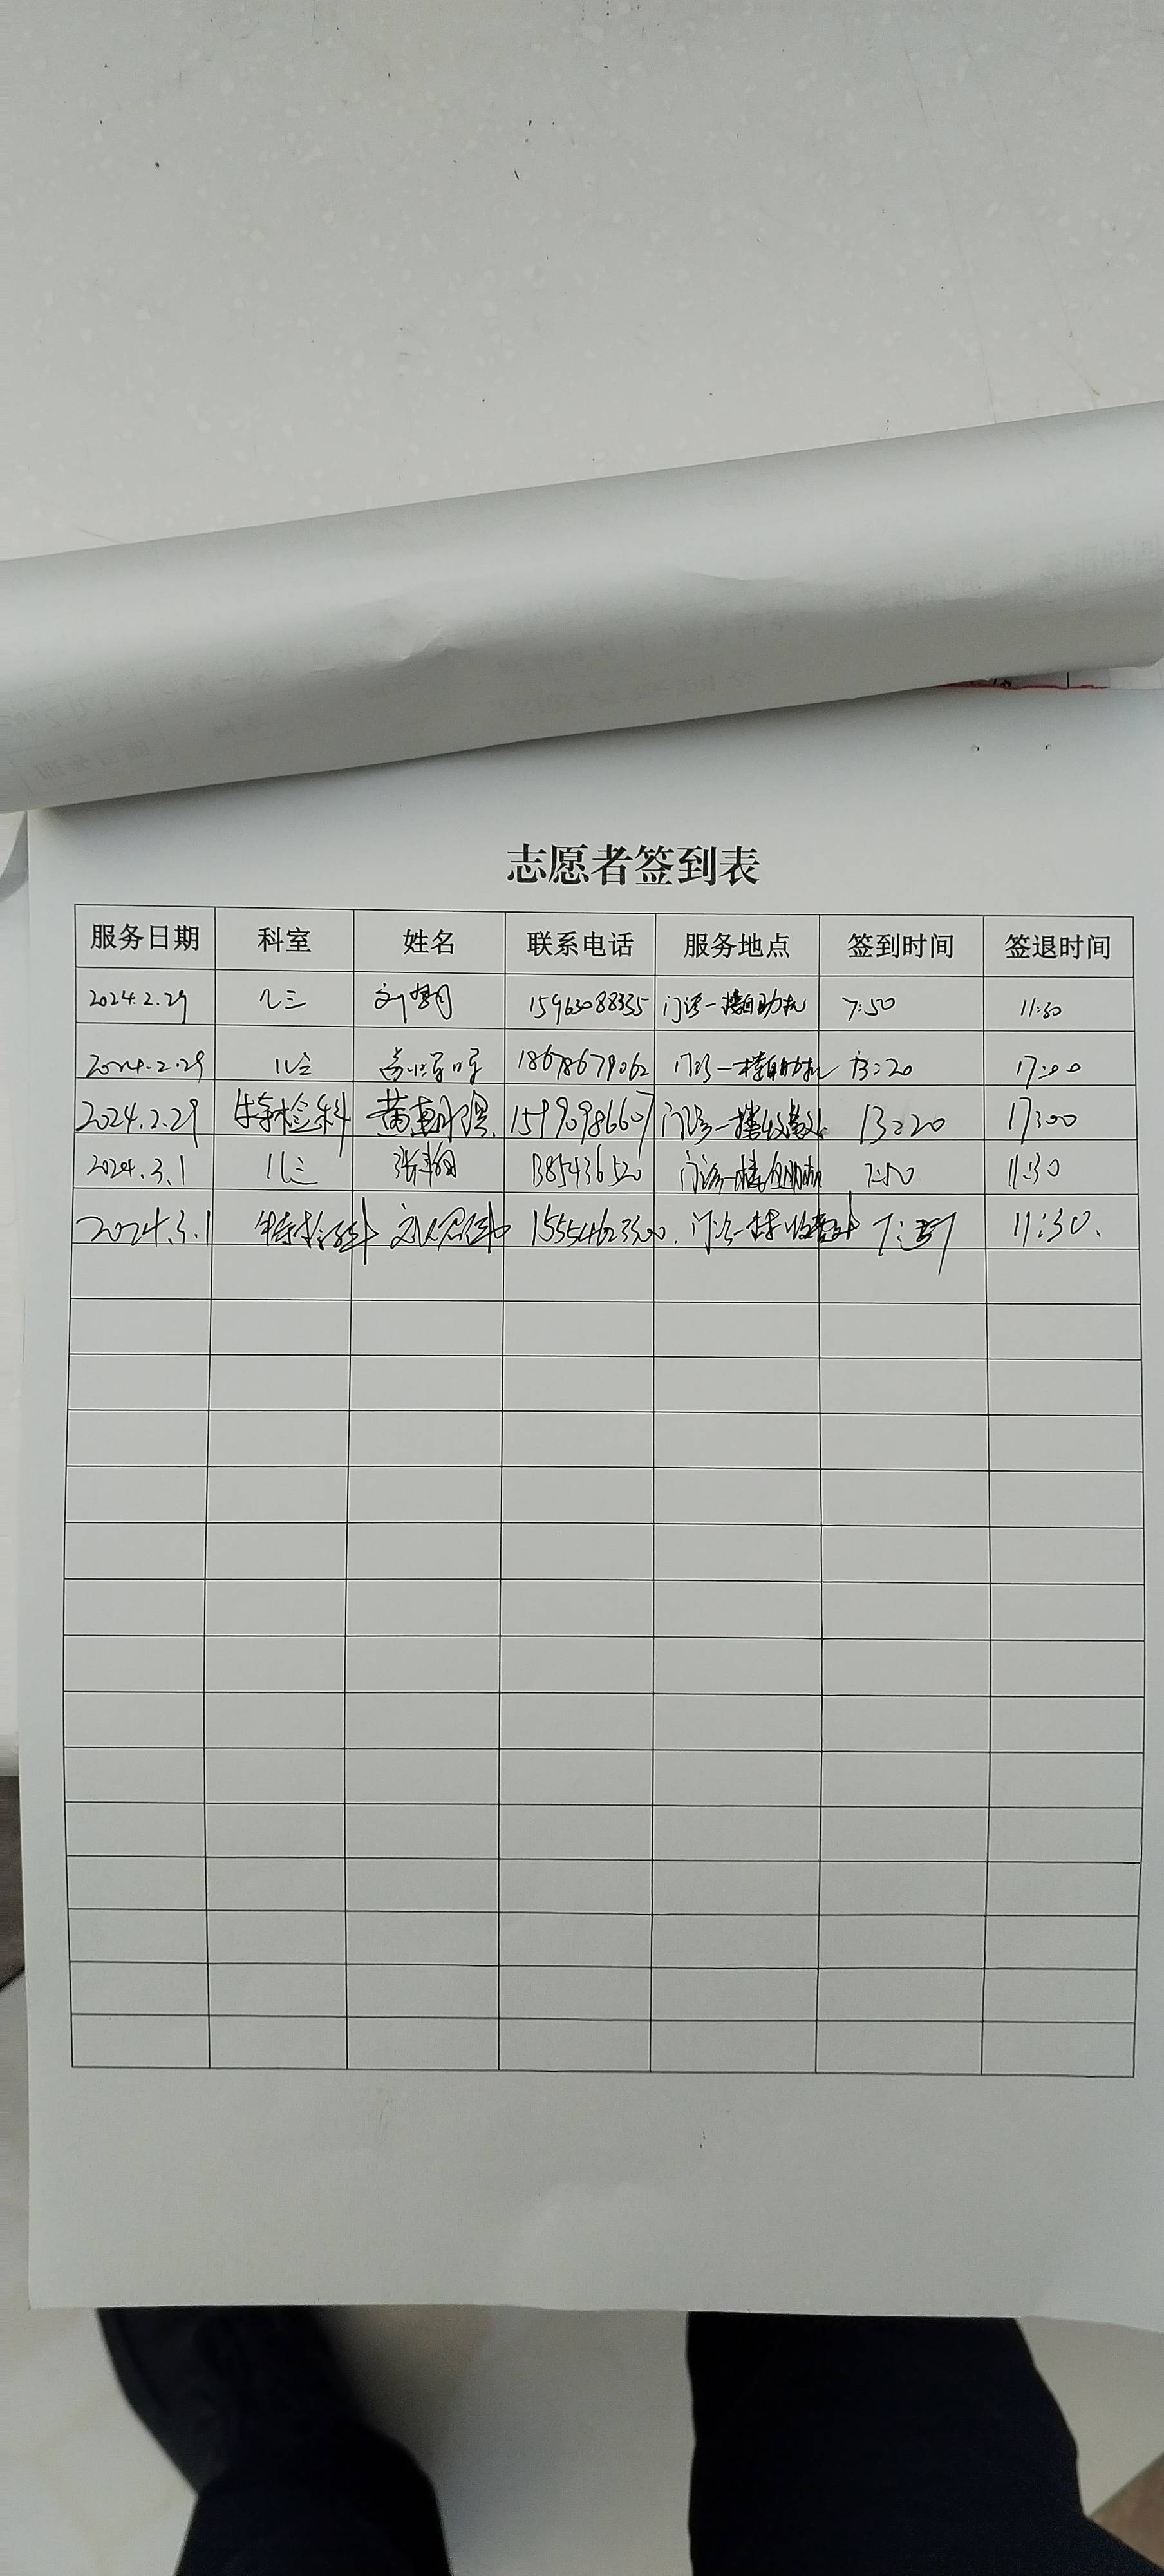 志愿者签到表
服务日期 科室 姓名 联系电话 服务地点 签到时间 签退时间
2024.2.29 儿三 刘 15963088335 门诊一楼自助机 7:50 11:30
2024.2.29 儿三 18678679062 门诊一楼自助机 13:20 17:00
2024.2.29 特检科 黄 门诊一楼收费处 13:20 17:00
2024.3.1 儿三 张 门诊一楼自助机 7:50 11:30
2024.3.1 特检科 刘 门诊一楼收费处 11:30